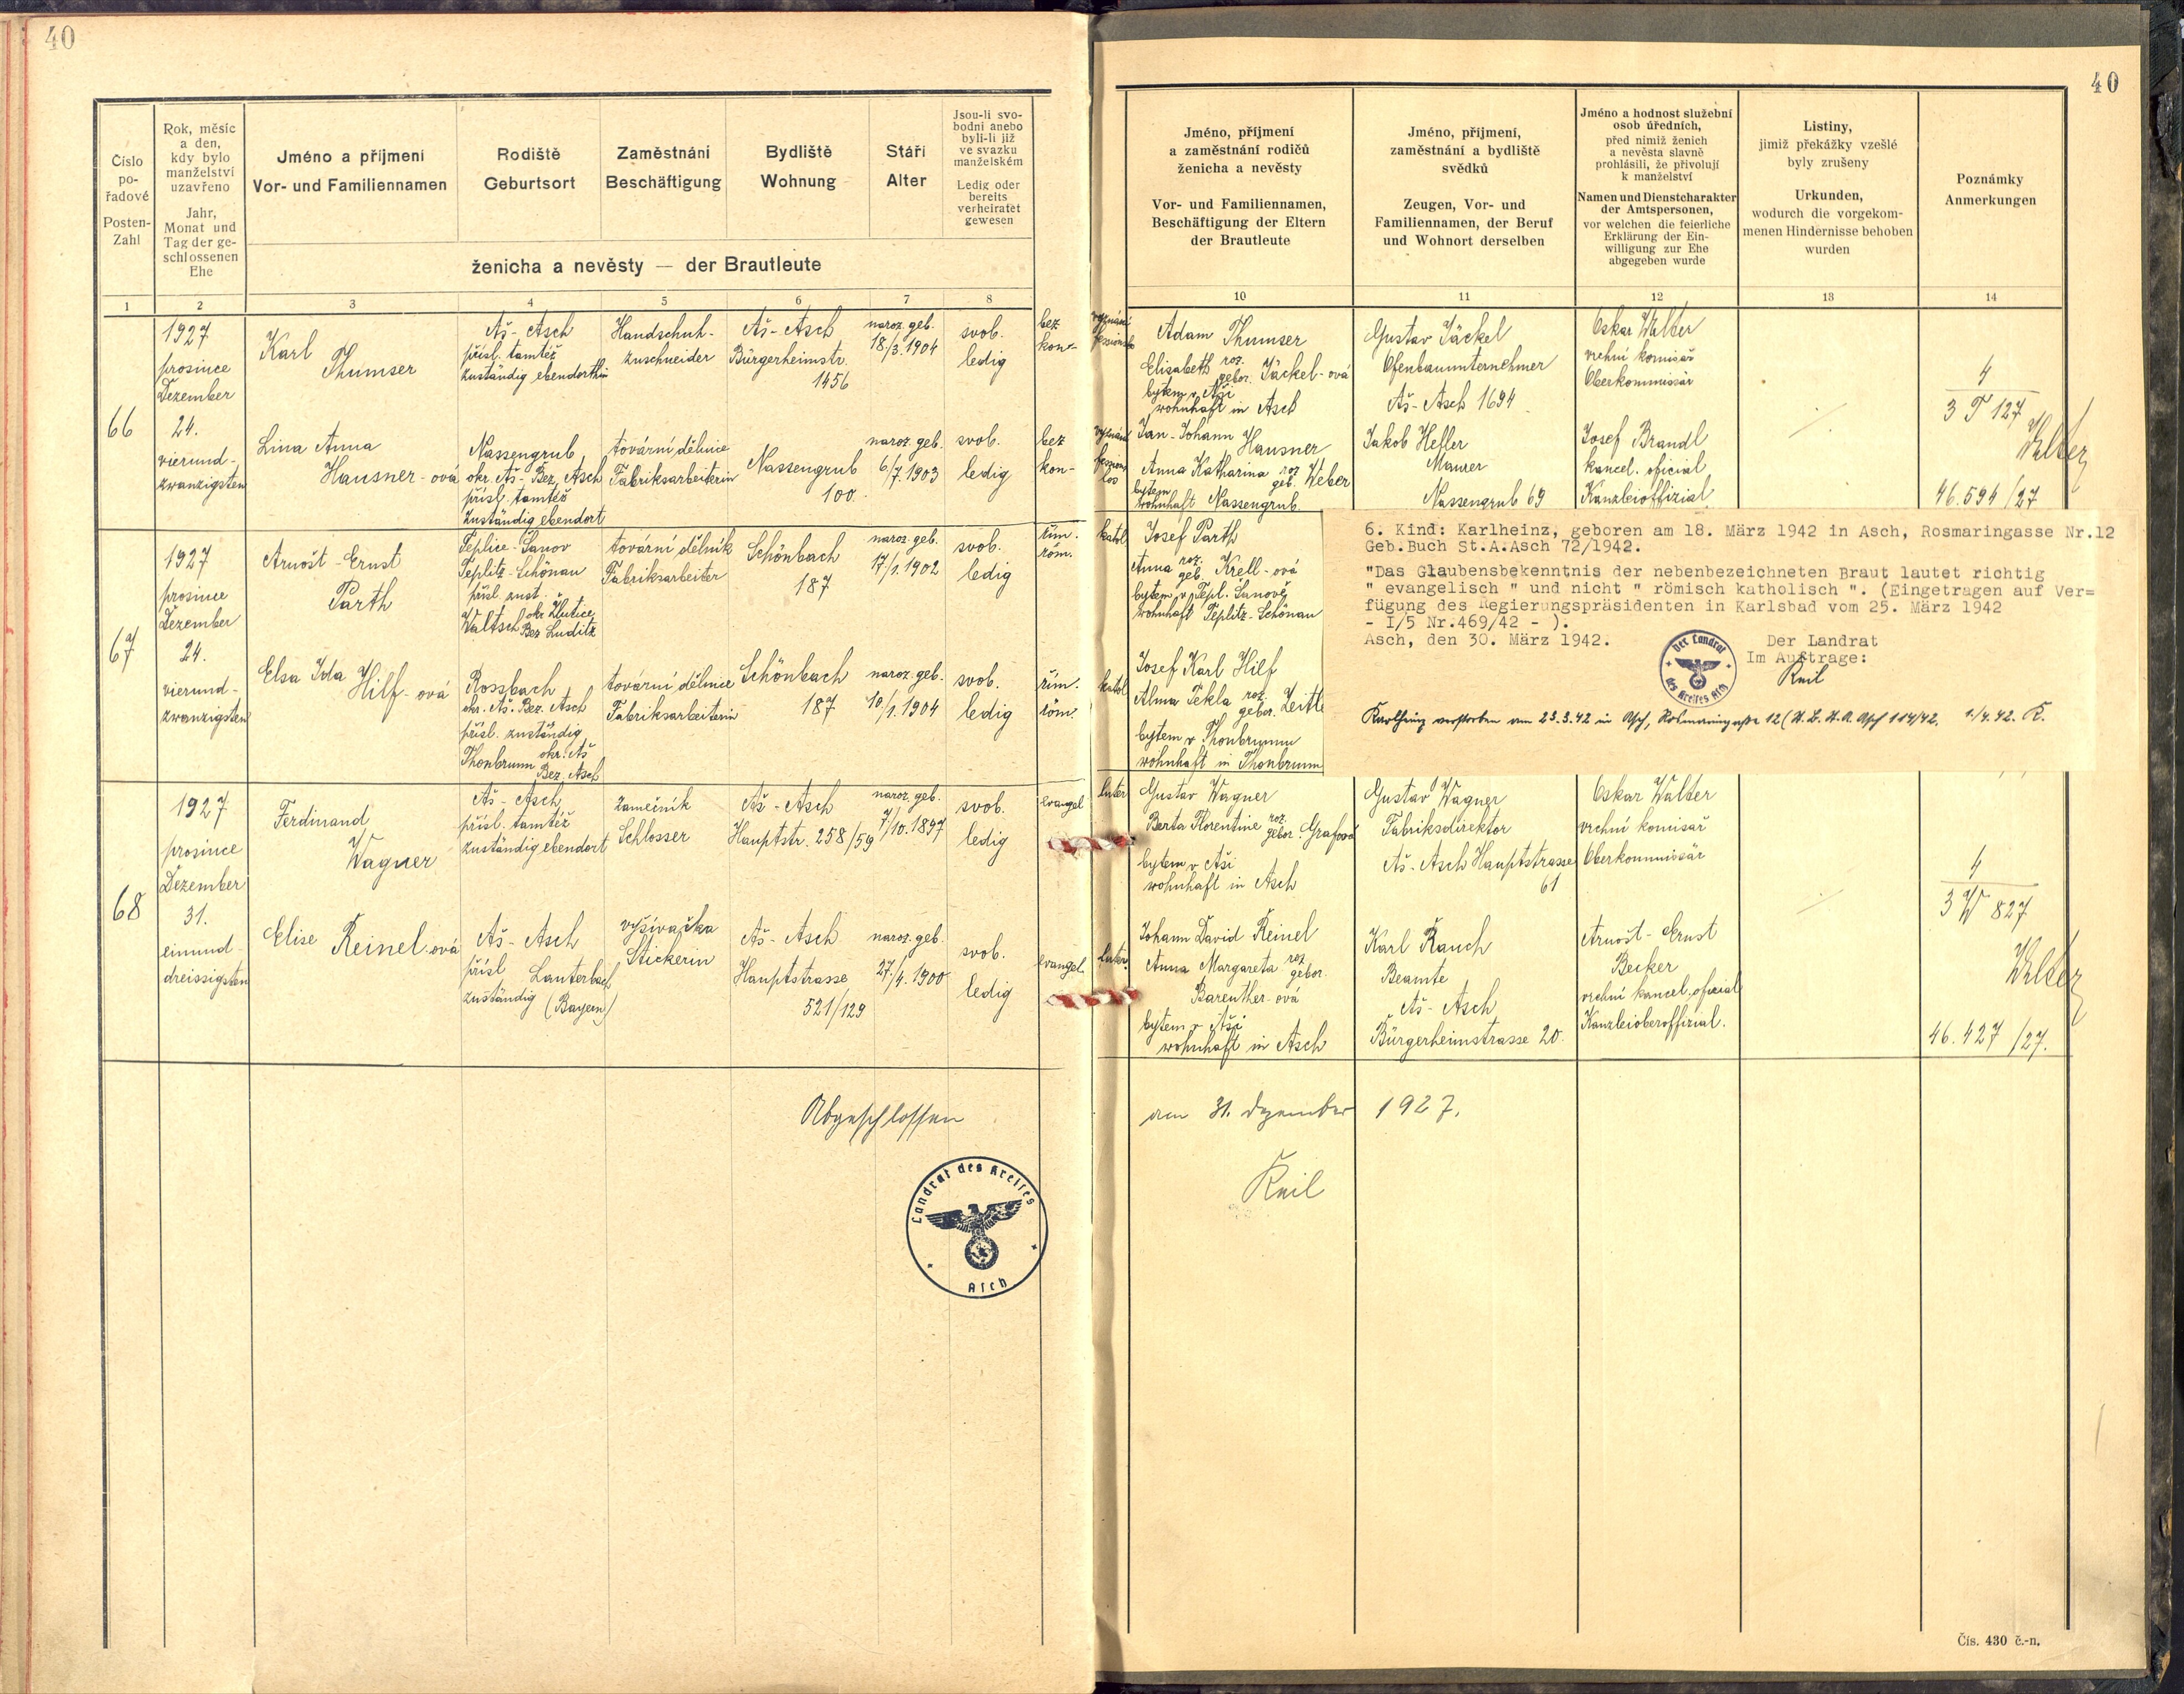 40
40
Číslo
po-
řadové
Posten-
Zahl
Rok, měsíc
a den,
kdy bylo
manželství
uzavřeno
Jahr,
Monat und
Tag der ge-
schlossenen
Ehe
Jméno a příjmení
Vor- und Familiennamen
Rodiště
Geburtsort
Zaměstnání
Beschäftigung
Bydliště
Wohnung
Stáří
Alter
Jsou-li svo-
bodni anebo
byli-li již
ve svazku
manželském
Ledig oder
bereits
verheiratet
gewesen
ženicha a nevěsty — der Brautleute
Jméno, příjmení
a zaměstnání rodičů
ženicha a nevěsty
Vor- und Familiennamen,
Beschäftigung der Eltern
der Brautleute
Jméno, příjmení,
zaměstnání a bydliště
svědků
Zeugen, Vor- und
Familiennamen, der Beruf
und Wohnort derselben
Jméno a hodnost služební
osob úředních,
před nimiž ženich
a nevěsta slavně
prohlásili, že přivolují
k manželství
Namen und Dienstcharakter
der Amtspersonen,
vor welchen die feierliche
Erklärung der Ein-
willigung zur Ehe
abgegeben wurde
Listiny,
jimiž překážky vzešlé
byly zrušeny
Urkunden,
wodurch die vorgekom-
menen Hindernisse behoben
wurden
Poznámky
Anmerkungen
1 2 3 4 5 6 7 8
10 11 12 13 14
66
1927
prosince
Dezember
24.
vierund-
zwanzigsten
Karl
Thumser
Aš - Asch
přísl. tamtéž
zuständig ebendorthin
Handschuh-
zuschneider
Aš - Asch
Bürgerheimstr.
1456
naroz. geb.
18/3. 1904
svob.
ledig
bez vyznání
kon- fessionslos
Adam Thumser
Elisabeth roz. gebor. Jäckel-ová
bytem v Aši
wohnhaft in Asch
Gustav Jäckel
Ofenbauunternehmer
Aš - Asch 1694
Oskar Walter
vrchní komisař
Oberkommissär
4
3 T 127
Walter
46.594/27
Lina Anna
Hausner-ová
Nassengrub
okr. Aš - Bez. Asch
přísl. tamtéž
zuständig ebendort
tovární dělnice
Fabriksarbeiterin
Nassengrub
100
naroz. geb.
6/7. 1903
svob.
ledig
bez vyznání
kon- fessions
los
Jan - Johann Hausner
Anna Katharina roz. geb. Weber
bytem
wohnhaft Nassengrub
Jakob Heller
Maurer
Nassengrub 69
Josef Brandl
kancel. oficial
Kanzleioffizial
67
1927
prosince
Dezember
24.
vierund-
zwanzigsten
Arnošt - Ernst
Parth
Teplice - Šanov
Teplitz - Schönau
přísl. zust.
Waltsch okr. Žlutice
Bez. Luditz
tovární dělník
Fabriksarbeiter
Schönbach
187
naroz. geb.
17/1. 1902
svob.
ledig
řím. katol
röm.
Josef Parth
Anna roz. geb. Krell-ová
bytem v Tepl. Šanově
wohnhaft Teplitz - Schönau
Elsa Ida
Hilf-ová
Rossbach
okr. Aš - Bez. Asch
přísl. zuständig
Thonbrunn okr. Aš
Bez. Asch
tovární dělnice
Fabriksarbeiterin
Schönbach
187
naroz. geb.
10/1. 1904
svob.
ledig
řím. katol
röm.
Josef Karl Hilf
Alma Tekla roz. gebor.
bytem v Thonbrunnu
wohnhaft in Thonbrunn
6. Kind: Karlheinz, geboren am 18. März 1942 in Asch, Rosmaringasse Nr.12
Geb.Buch St.A.Asch 72/1942.
"Das Glaubensbekenntnis der nebenbezeichneten Braut lautet richtig
" evangelisch " und nicht " römisch katholisch ". (Eingetragen auf Ver=
fügung des Regierungspräsidenten in Karlsbad vom 25. März 1942
- I/5 Nr.469/42 - ).
Asch, den 30. März 1942.
Der Landrat
Im Auftrage:
Keil
Der Landrat
des Kreises Asch
Karlheinz verstorben am 23.3.42 in Asch, Rosmaringasse 12 (St.B. St.A. Asch 114/42. 1./4. 42. K.
68
1927
prosince
Dezember
31.
einund-
dreissigsten
Ferdinand
Wagner
Aš - Asch
přísl. tamtéž
zuständig ebendort
zámečník
Schlosser
Aš - Asch
Hauptstr. 258/59
naroz. geb.
7/10. 1897
svob.
ledig
evangel. luter
Gustav Wagner
Berta Florentine roz. gebor. Grafová
bytem v Aši
wohnhaft in Asch
Gustav Wagner
Fabriksdirektor
Aš - Asch Hauptstrasse
61
Oskar Walter
vrchní komisař
Oberkommissär
4
3 W 827
Walter
46.427/27.
Elise Reinel-ová
Aš - Asch
přísl. Lauterbach
zuständig (Bayern)
vyšívačka
Stickerin
Aš - Asch
Hauptstrasse
521/129
naroz. geb.
27./4. 1900
svob.
ledig
evangel. luter.
Johann David Reinel
Anna Margareta roz. gebor.
Barenther-ová
bytem v Aši
wohnhaft in Asch
Karl Rauch
Beamte
Aš - Asch
Bürgerheimstrasse 20.
Arnošt - Ernst
Becker
vrchní kancel. oficial
Kanzleioberoffizial.
Abgeschlossen am 31. Dezember 1927.
Keil
Landrat des Kreises
Asch
Čís. 430 č.-n.